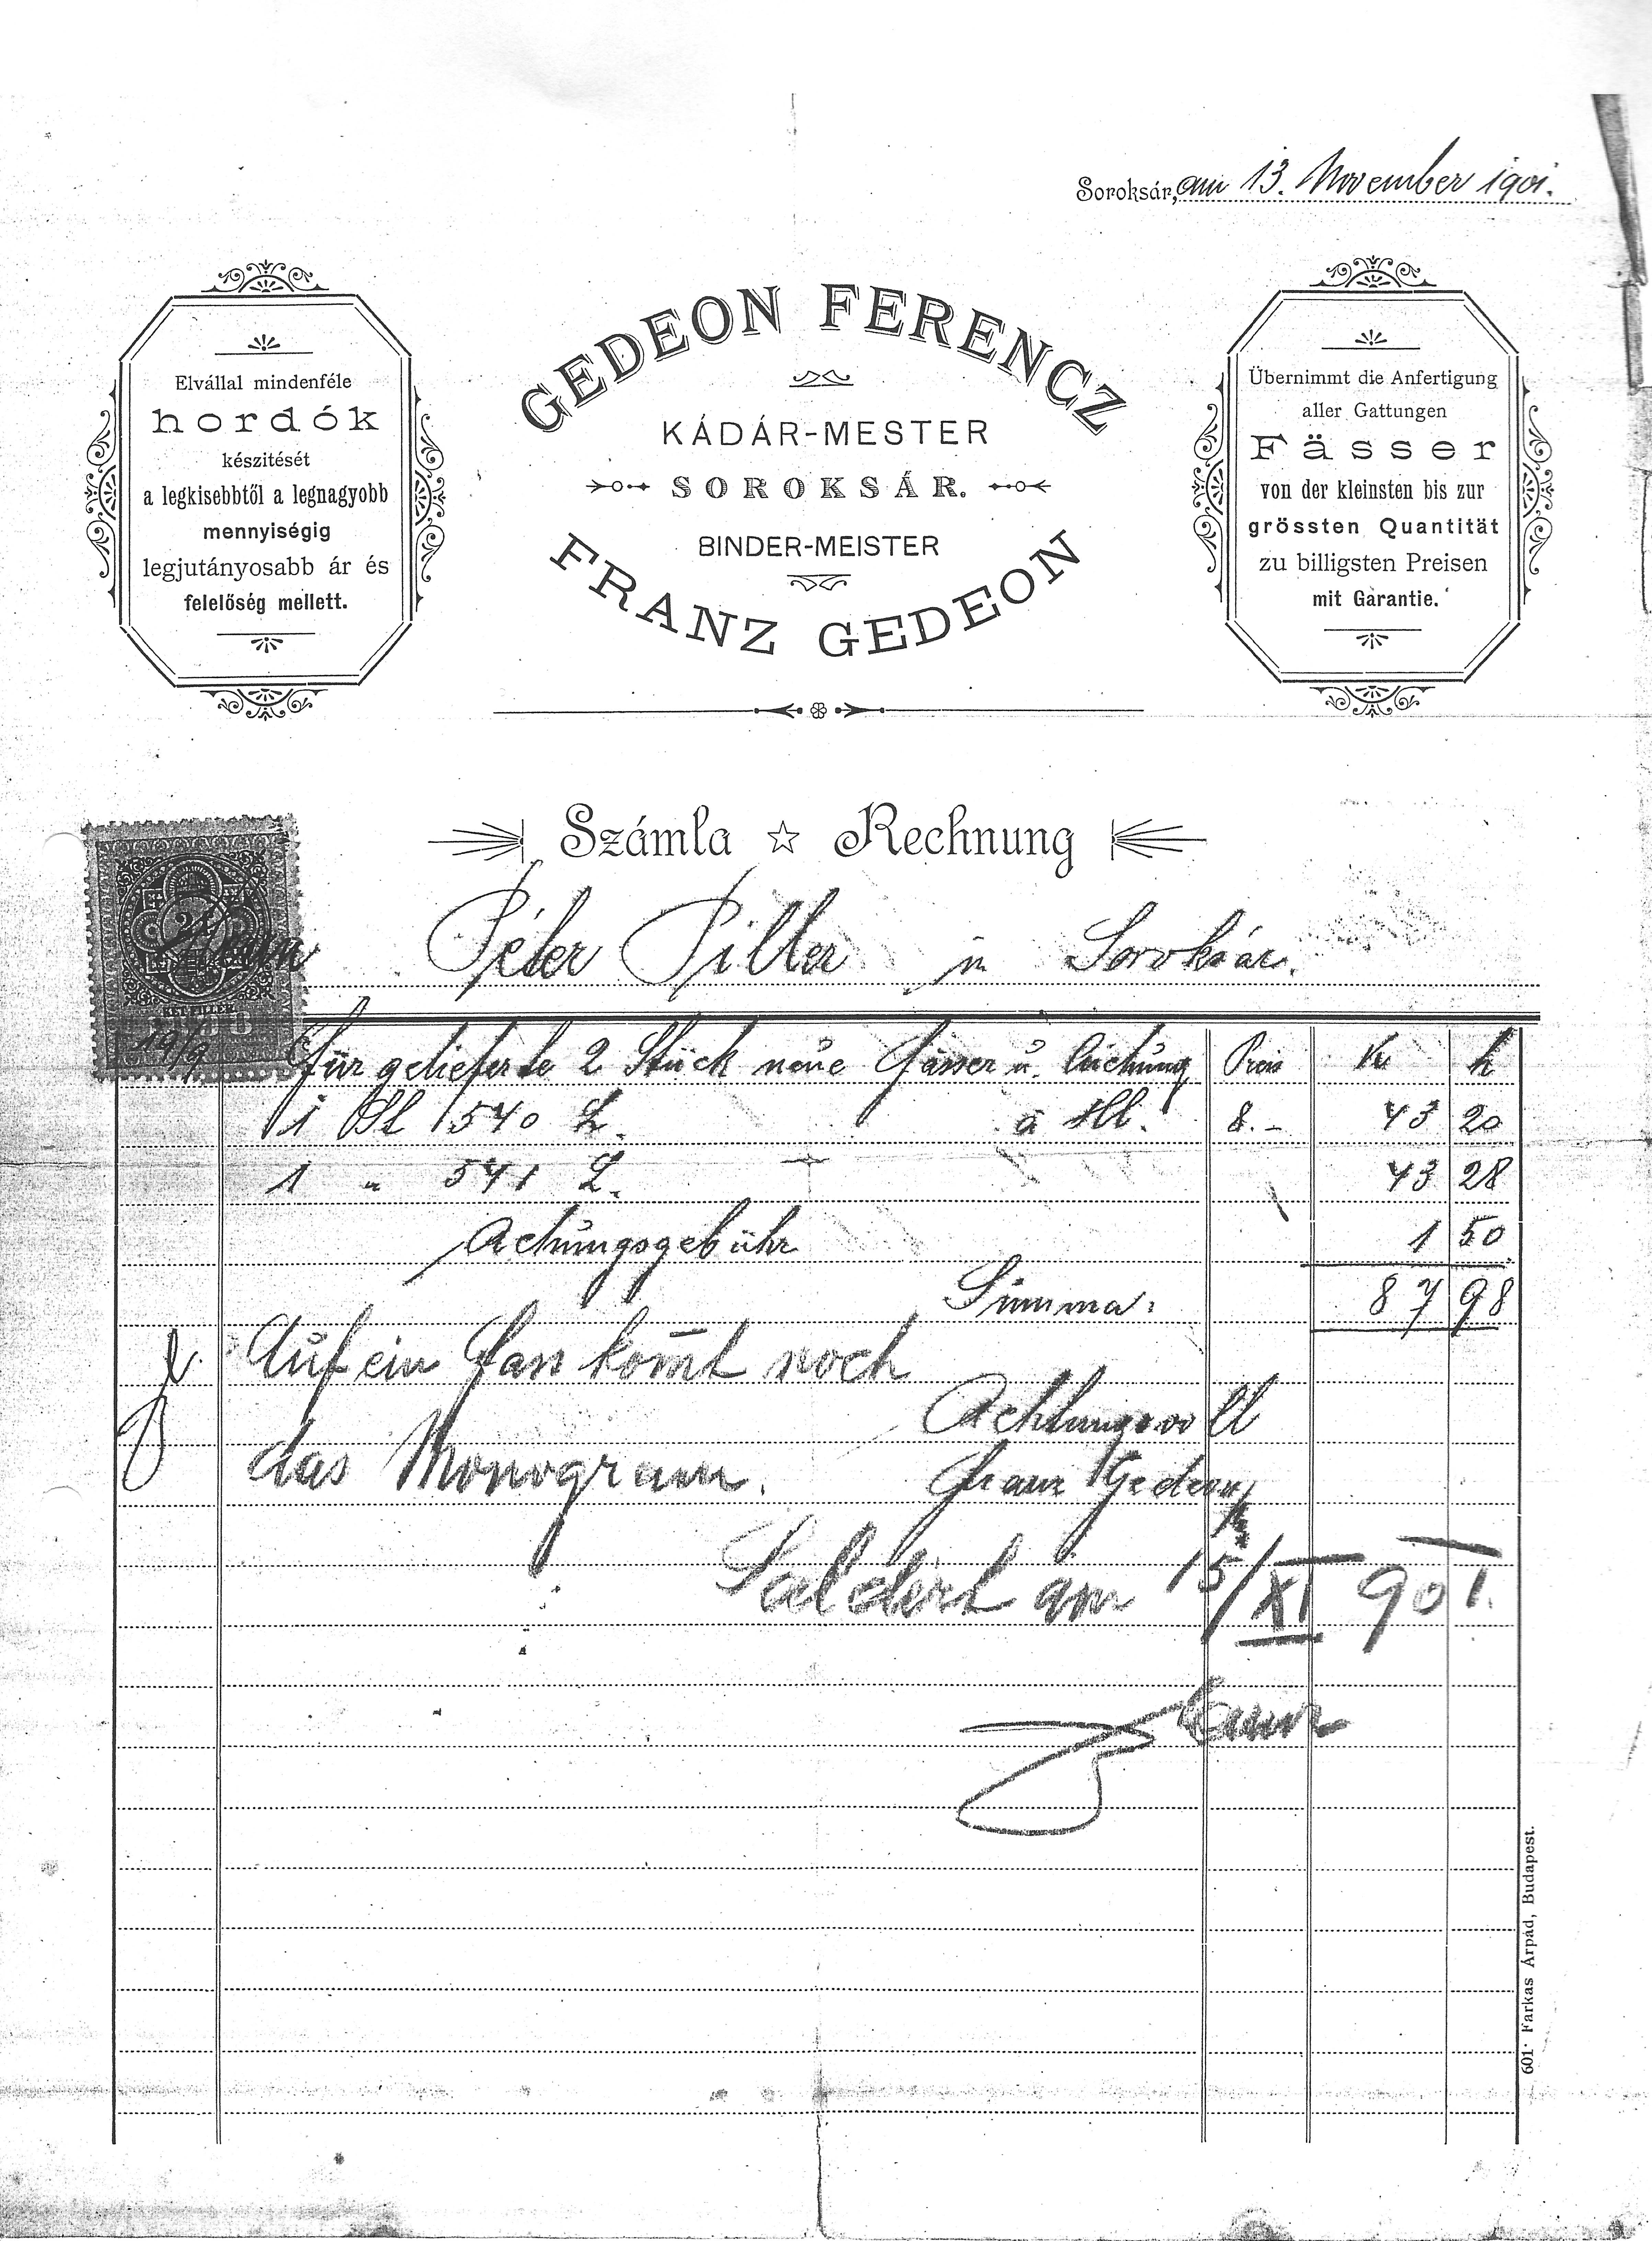 Soroksár, am 13. November 1901.
Elvállal mindenféle
hordók
készitését
a legkisebbtől a legnagyobb
mennyiségig
legjutányosabb ár és
felelőség mellett.
GEDEON FERENCZ
KÁDÁR-MESTER
SOROKSÁR.
BINDER-MEISTER
FRANZ GEDEON
Übernimmt die Anfertigung
aller Gattungen
Fässer
von der kleinsten bis zur
grössten Quantität
zu billigsten Preisen
mit Garantie.
Számla ☆ Rechnung
KÉT FILLÉR
Péter Piller in Soroksár.
Für gelieferte 2 Stück neue Fässer u. Aichung Preis Kr h
1 540 L. á Hl. 8.- 43 20
1 " 541 L. 43 28
Achungsgebühr 1 50
Summa: 87 98
Auf ein Fass kom̄t noch
das Monogram.
Achtungsvoll
Franz Gedeon
Saldirt am 15/XI 901.
601 Farkas Árpád, Budapest.